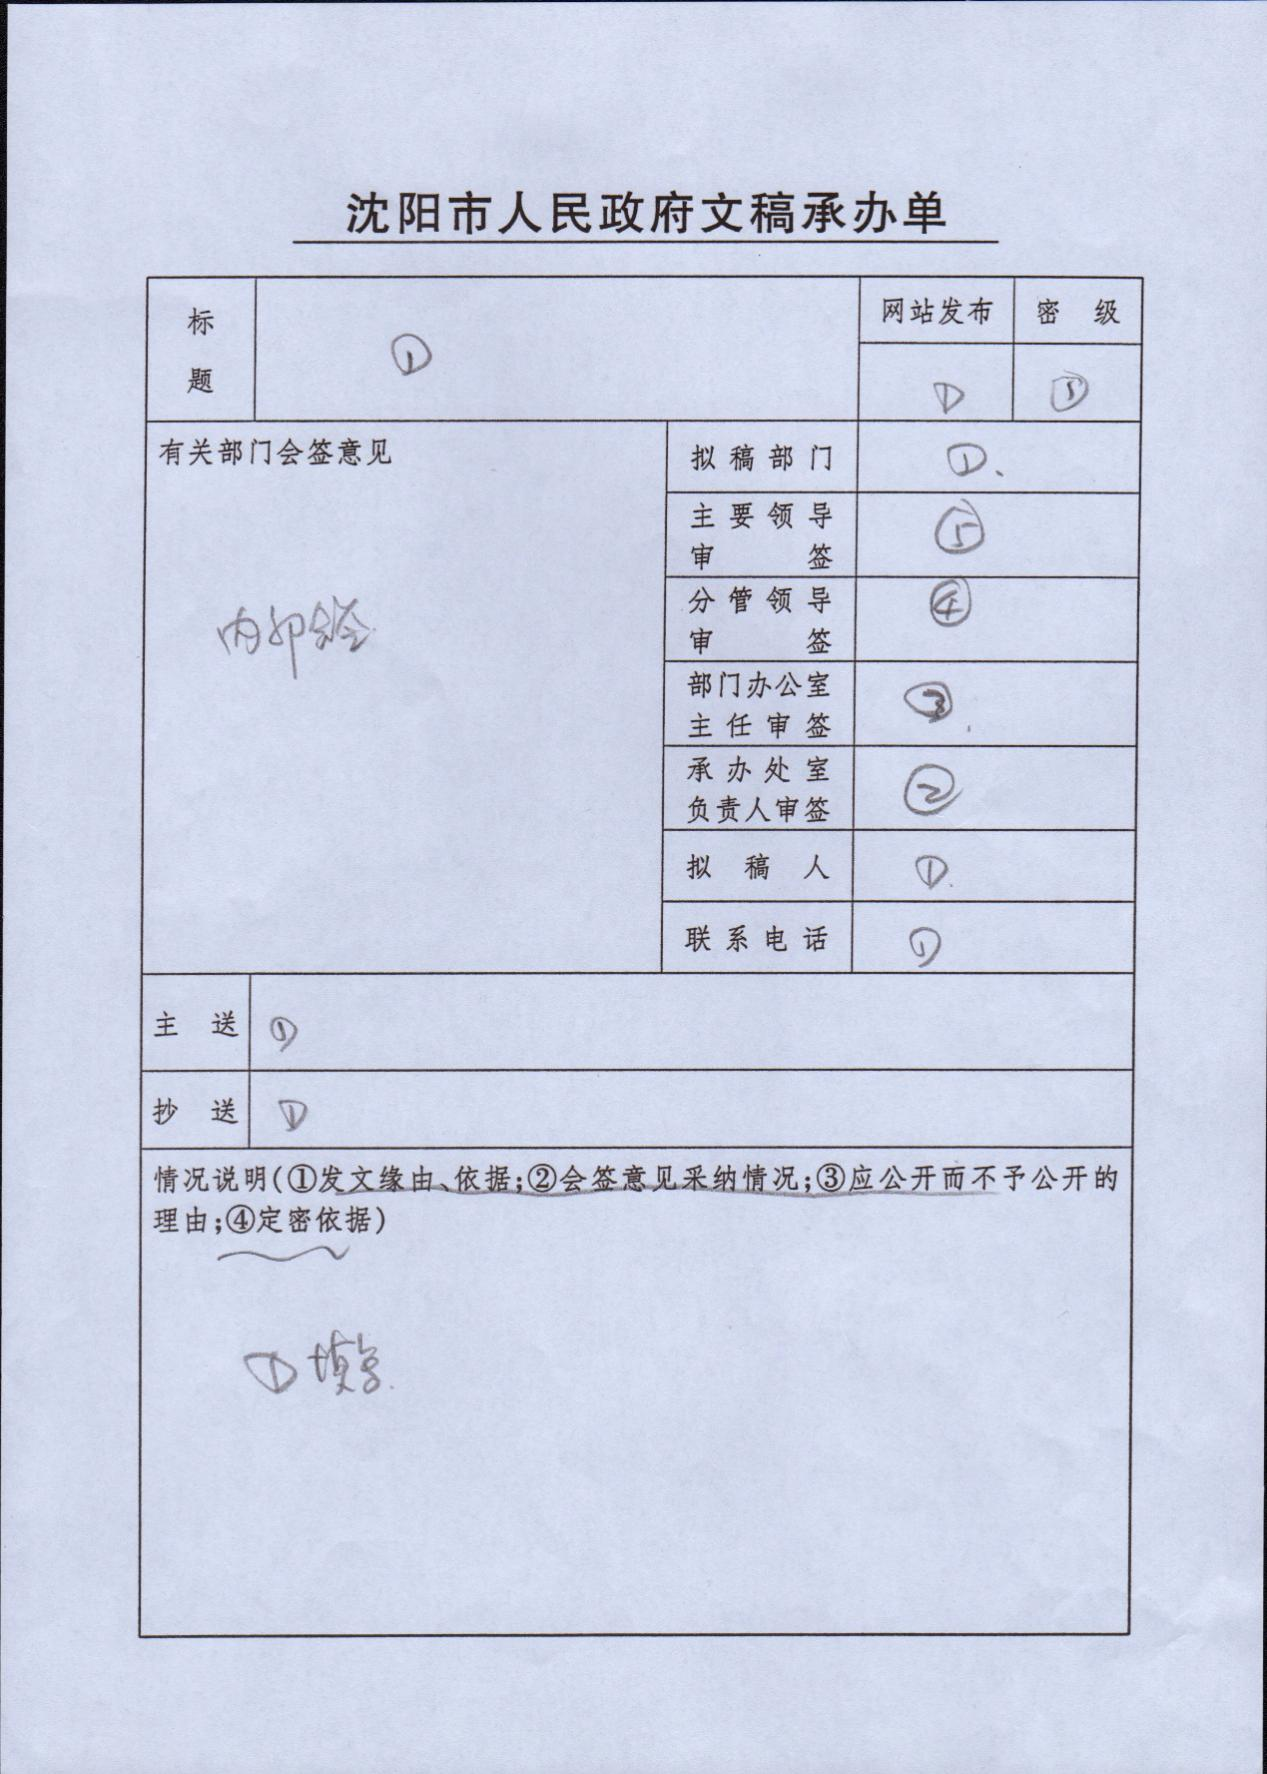 沈阳市人民政府文稿承办单
标题
①
网站发布
密级
①
①
有关部门会签意见
内部会签
拟稿部门
①、
主要领导
审签
⑤
分管领导
审签
④
部门办公室
主任审签
③
承办处室
负责人审签
②
拟稿人
①
联系电话
①
主送
①
抄送
①
情况说明(①发文缘由、依据;②会签意见采纳情况;③应公开而不予公开的
理由;④定密依据)
①填写